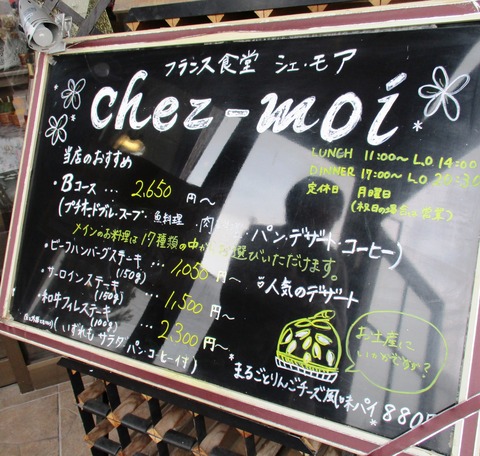 フランス食堂 シェ・モア
chez-moi
LUNCH 11:00～ L.O 14:00
DINNER 17:00～ L.O 20:30
定休日 月曜日
(祝日の場合は営業)
当店のおすすめ
・Bコース … 2,650円～
(プチオードブル・スープ・魚料理・肉料理・パン・デザート・コーヒー)
メインのお料理は17種類の中からお選びいただけます。
・ビーフハンバーグステーキ (150g) … 1,050円～
・サーロインステーキ (150g) … 1,500円～
・和牛フィレステーキ (100g) … 2,300円～
(いずれもサラダ
パン・コーヒー付)
人気のデザート
お土産に
いかがですか?
まるごとりんごチーズ風味パイ 880円